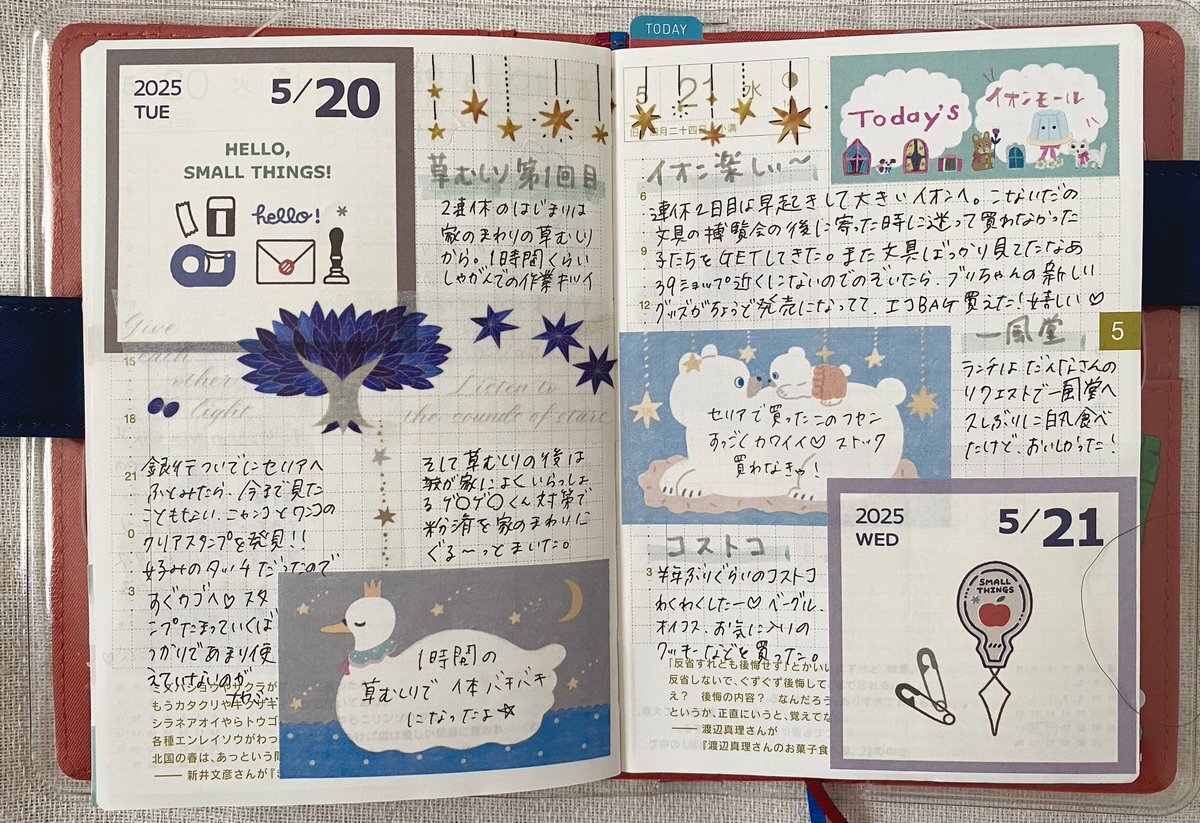 TODAY
2025
TUE
5/20
HELLO,
SMALL THINGS!
hello!
草むしり第1回目
2連休のはじまりは
家のまわりの草むしり
から。1時間くらい
しゃがんでの作業キツイ
Give
each
other
light
Listen to
the sounds of stars
15
18
21
0
3
銀行ついでにセリアへ
ふとみたら、今まで見た
こともない、ニャンコとワンコの
クリアスタンプを発見!!
好みのタッチだったので
すぐカゴへ♡ スタ
ンプたまっていくば
っかりであまり使
えていないのが
そして草むしりの後は
我が家によくいらっしゃ
るゲ〇ゲ〇くん対策で
粉剤を家のまわりに
ぐる〜っとまいた。
1時間の
草むしりで 体バキバキ
になったよ☆
ミズバショウやザクラが
もうカタクリや
シラネアオイやらトウゴ
各種エンレイソウがわっ
北国の春は、あっという間
—— 新井文彦さんが『き
5 21 水
旧 月二十四日 小満
Today's
イオンモール
イオン楽しい〜
6
9
12
3
連休2日目は早起きして大きいイオンへ。こないだの
文具の博覧会の後に寄った時に迷って買わなかった
子たちをGETしてきた。また文具ばっかり見てたなぁ
39ショップ近くにないのでのぞいたら、ブリちゃんの新しい
グッズがちょうど発売になってて、エコBAG買えた!嬉しい♡
セリアで買ったこのフセン
すっごくカワイイ♡ ストック
買わなきゃ!
一風堂
5
ランチはだんなさんの
リクエストで一風堂へ
久しぶりに白丸食べ
たけど、おいしかった!
コストコ
半年ぶりぐらいのコストコ
わくわくしたー♡ ベーグル、
オイコス、お気に入りの
クッキーなどを買った。
「反省すれども後悔せず」とかいい
反省しないで、ぐずぐず後悔して
え? 後悔の内容? なんだろう
というか、正直にいうと、覚えてな
—— 渡辺真理さんが
『渡辺真理さんのお菓子食
2025
WED
5/21
SMALL
THINGS